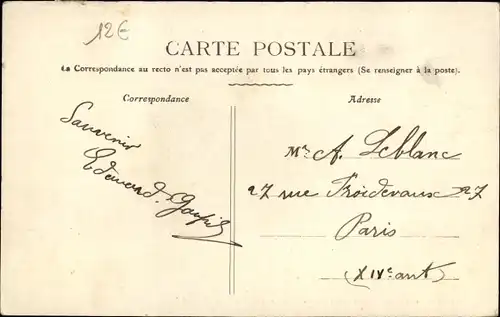 12€
CARTE POSTALE
La Correspondance au recto n'est pas acceptée par tous les pays étrangers (Se renseigner à la poste).
Correspondance
Adresse
Souvenir
Edouard
Mr A. Leblanc
27 rue Froidevaux 27
Paris
(XIVe arrt)